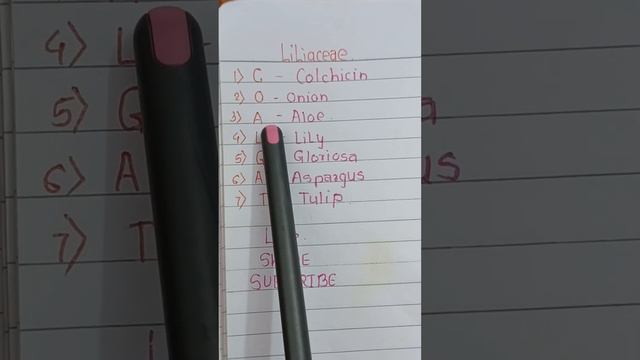 Liliaceae
1) C - Colchicin
2) O - Onion
3) A - Aloe
4) L - Lily
5) G Gloriosa
6) A Aspargus
7) T Tulip